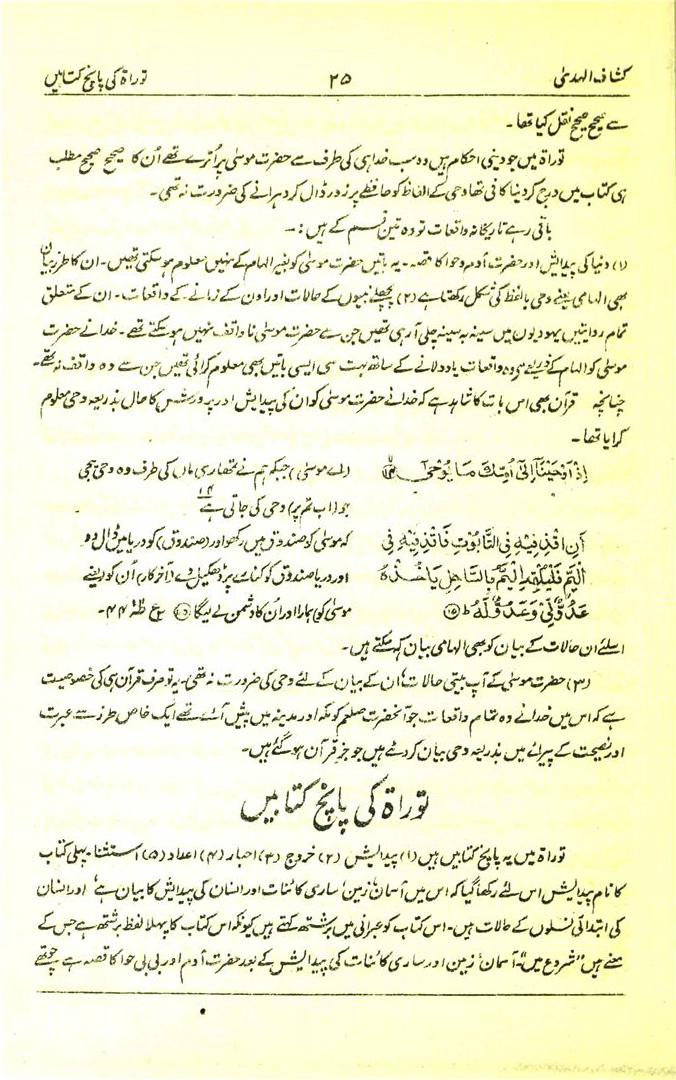 کشاف الہدیٰ ۲۵ توراۃ کی پانچ کتابیں
سے صحیح صحیح نقل کیا تھا۔
توراۃ میں جو دینی احکام ہیں وہ سب خدا ہی کی طرف سے حضرت موسیٰ پر اُترے تھے اُن کا صحیح صحیح مطلب
ہی کتاب میں درج کر دینا کافی تھا وحی کے الفاظ کو حافظے پر زور ڈال کر دہرانے کی ضرورت نہ تھی۔
باقی رہے تاریخانہ واقعات تو وہ تین قسم کے ہیں:۔
(۱) دنیا کی پیدائش اور حضرت آدم و حوا کا قصہ۔ یہ باتیں حضرت موسیٰ کو بغیر الہام کے نہیں معلوم ہو سکتی تھیں۔ ان کا طرز بیان
بھی الہامی یعنے وحی بالفظ کی شکل رکھتا ہے (۲) پچھلے نبیوں کے حالات اور اون کے زمانے کے واقعات۔ ان کے متعلق
تمام روایتیں یہودیوں میں سینہ بہ سینہ چلی آ رہی تھیں جن سے حضرت موسیٰ نا واقف نہیں ہو سکتے تھے۔ خدا نے حضرت
موسیٰ کو الہام کے ذریعے ہی وہ واقعات یاد دلانے کے ساتھ بہت سی ایسی باتیں بھی معلوم کرائی تھیں جن سے وہ واقف نہ تھے۔
چنانچہ قرآن بھی اس بات کا شاہد ہے کہ خدا نے حضرت موسیٰ کو ان کی پیدایش اور پرورش کا حال بذریعہ وحی معلوم
کرایا تھا۔
اِذْ اَوْحَيْنَآ اِلٰٓى اُمِّكَ مَا يُوْحٰٓى ۙ (اے موسیٰ) جبکہ ہم نے تمھاری ماں کی طرف وہ وحی بھیجی
جو (اب تم پر) وحی کی جاتی ہے
اَنِ اقْذِفِيْهِ فِى التَّابُوْتِ فَاقْذِفِيْهِ فِى کہ موسیٰ کو صندوق میں رکھو اور (صندوق) کو دریا میں ڈال دو
الْيَمِّ فَلْيُلْقِهِ الْيَمُّ بِالسَّاحِلِ يَاْخُذْهُ اور دریا صندوق کو کنارے پر ڈھکیل دے (آخر کار) اُن کو (یعنے
عَدُوٌّ لِّىْ وَعَدُوٌّ لَّهٗ ؕ موسیٰ کو) ہمارا اور اُن کا دشمن لے لیگا طٰہٰ ۴۴۔
اسلئے ان حالات کے بیان کو بھی الہامی بیان کہہ سکتے ہیں۔
(۳) حضرت موسیٰ کے آپ بیتی حالات ان کے بیان کے لئے وحی کی ضرورت نہ تھی۔ یہ تو صرف قرآن ہی کی خصوصیت
ہے کہ اس میں خدا نے وہ تمام واقعات جو آنحضرت صلعم کو مکہ اور مدینہ میں پیش آئے تھے ایک خاص طرز سے عبرت
اور نصیحت کے پیرائے میں بذریعہ وحی بیان کر دئے ہیں جو جزِ قرآن ہو گئے ہیں۔
توراۃ کی پانچ کتابیں
توراۃ میں یہ پانچ کتابیں ہیں (۱) پیدایش (۲) خروج (۳) احبار (۴) اعداد (۵) استثنا۔ پہلی کتاب
کا نام پیدایش اس لئے رکھا گیا کہ اس میں آسمان، زمین، ساری کائنات اور انسان کی پیدایش کا بیان ہے، اور انسان
کی ابتدائی نسلوں کے حالات ہیں۔ اس کتاب کو عبرانی میں برشتھ کہتے ہیں کیونکہ اس کتاب کا پہلا لفظ برشتھ ہے جس کے
معنے ہیں "شروع میں"۔ آسمان، زمین اور ساری کائنات کی پیدایش کے بعد حضرت آدم اور بی بی حوا کا قصہ ہے چوتھے